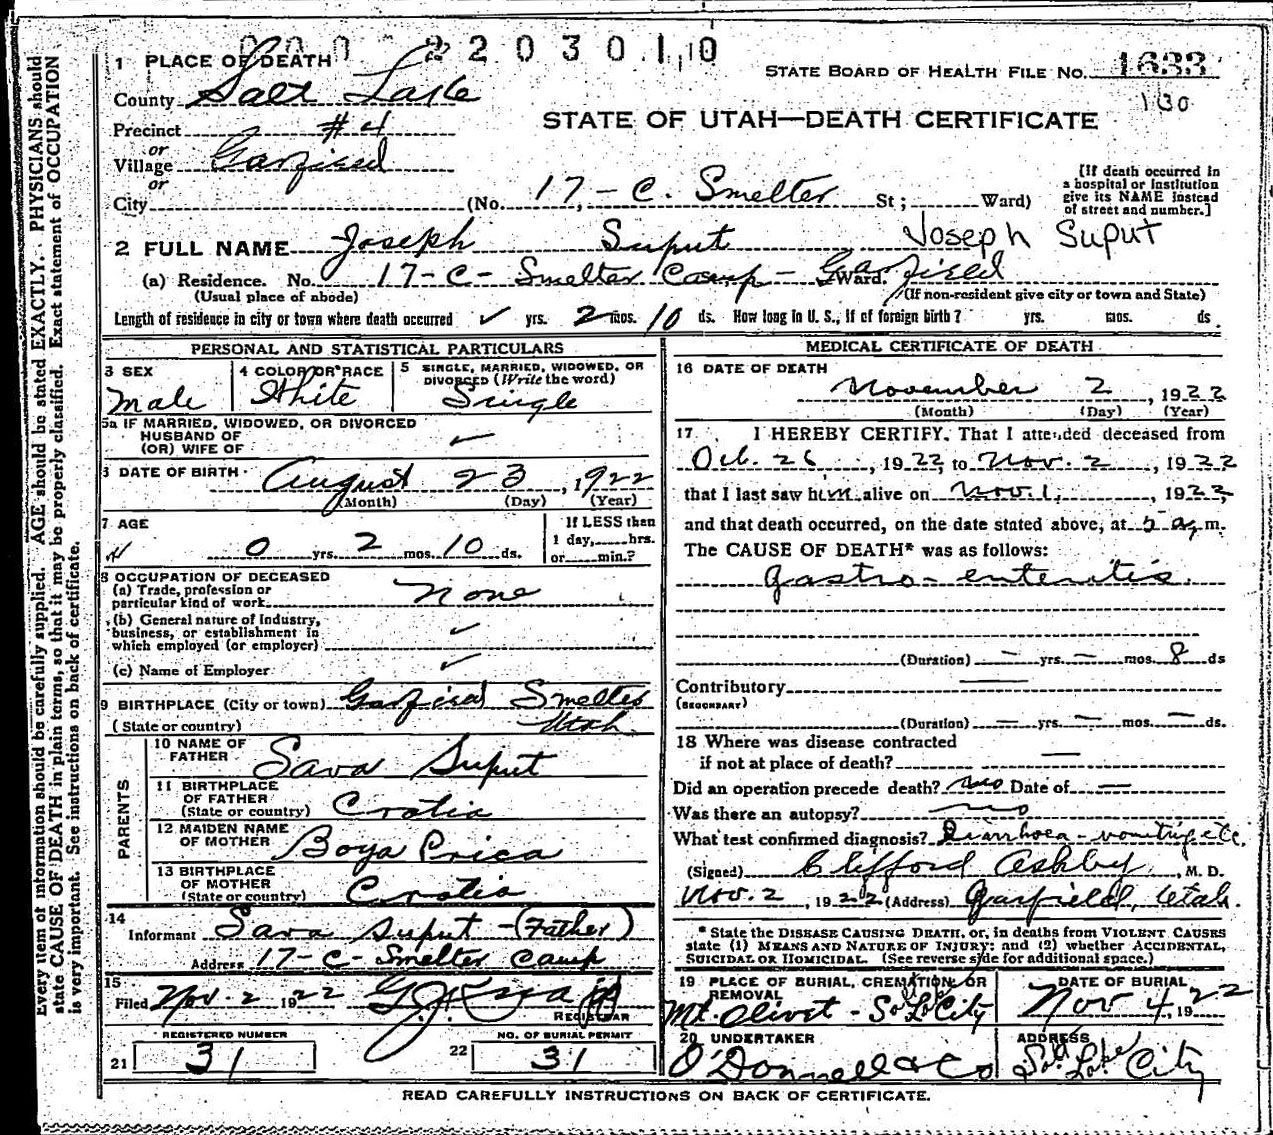 000 2203010
1 PLACE OF DEATH
STATE BOARD OF HEALTH FILE NO. 1633
County Salt Lake
130
Precinct #4
STATE OF UTAH—DEATH CERTIFICATE
or
Village Garfield
or
City (No. 17-C. Smelter St; Ward)
[If death occurred in
a hospital or institution
give its NAME instead
of street and number.]
2 FULL NAME Joseph Suput Joseph Suput
(a) Residence. No. 17-C- Smelter Camp - Garfield Ward.
(Usual place of abode) (If non-resident give city or town and State)
Length of residence in city or town where death occurred ✓ yrs. 2 mos. 10 ds. How long in U. S., if of foreign birth? yrs. mos. ds.
PERSONAL AND STATISTICAL PARTICULARS
3 SEX
Male
4 COLOR OR RACE
White
5 SINGLE, MARRIED, WIDOWED, OR
DIVORCED (Write the word)
Single
5a IF MARRIED, WIDOWED, OR DIVORCED
HUSBAND OF
(OR) WIFE OF ✓
DATE OF BIRTH August 23, 1922
(Month) (Day) (Year)
7 AGE
0 yrs. 2 mos. 10 ds.
If LESS then
1 day, hrs.
or min.?
8 OCCUPATION OF DECEASED
(a) Trade, profession or
particular kind of work None
(b) General nature of Industry,
business, or establishment in
which employed (or employer) ✓
(c) Name of Employer ✓
9 BIRTHPLACE (City or town) Garfield Smelter
(State or country) Utah
PARENTS
10 NAME OF
FATHER Sava Suput
11 BIRTHPLACE
OF FATHER
(State or country) Crotia
12 MAIDEN NAME
OF MOTHER Boya Prica
13 BIRTHPLACE
OF MOTHER
(State or country) Crotia
14
Informant Sava Suput - (Father)
Address 17-C- Smelter Camp
15
Filed Nov. 2 1922
REGISTRAR
REGISTERED NUMBER
21 31
NO. OF BURIAL PERMIT
22 31
MEDICAL CERTIFICATE OF DEATH
16 DATE OF DEATH
November 2, 1922
(Month) (Day) (Year)
17 I HEREBY CERTIFY, That I attended deceased from
Oct. 26, 1922, to Nov. 2, 1922
that I last saw him alive on Nov. 1, 1922,
and that death occurred, on the date stated above, at 5 a. m.
The CAUSE OF DEATH* was as follows:
gastro-enteritis
(Duration) — yrs. — mos. 8 ds
Contributory —
(SECONDARY)
(Duration) — yrs. — mos. — ds.
18 Where was disease contracted
if not at place of death? —
Did an operation precede death? no Date of —
Was there an autopsy? no
What test confirmed diagnosis? Diarrhoea - vomiting etc.
(Signed) Clifford Ashby, M. D.
Nov. 2, 1922 (Address) Garfield, Utah.
* State the DISEASE CAUSING DEATH, or, in deaths from VIOLENT CAUSES
state (1) MEANS AND NATURE OF INJURY; and (2) whether ACCIDENTAL,
SUICIDAL OR HOMICIDAL. (See reverse side for additional space.)
19 PLACE OF BURIAL, CREMATION OR
REMOVAL
Mt. Olivet - So. L. City
DATE OF BURIAL
Nov 4, 1922
20 UNDERTAKER
O'Donnell & Co
ADDRESS
City
READ CAREFULLY INSTRUCTIONS ON BACK OF CERTIFICATE.
Every item of information should be carefully supplied. AGE should be stated EXACTLY. PHYSICIANS should
state CAUSE OF DEATH in plain terms, so that it may be properly classified. Exact statement of OCCUPATION
is very important. See instructions on back of certificate.